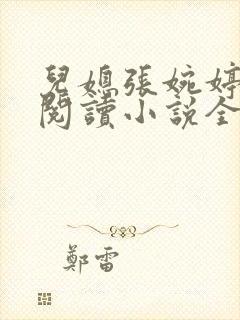 兒媳張婉婷
閱讀小説全
鄭雷